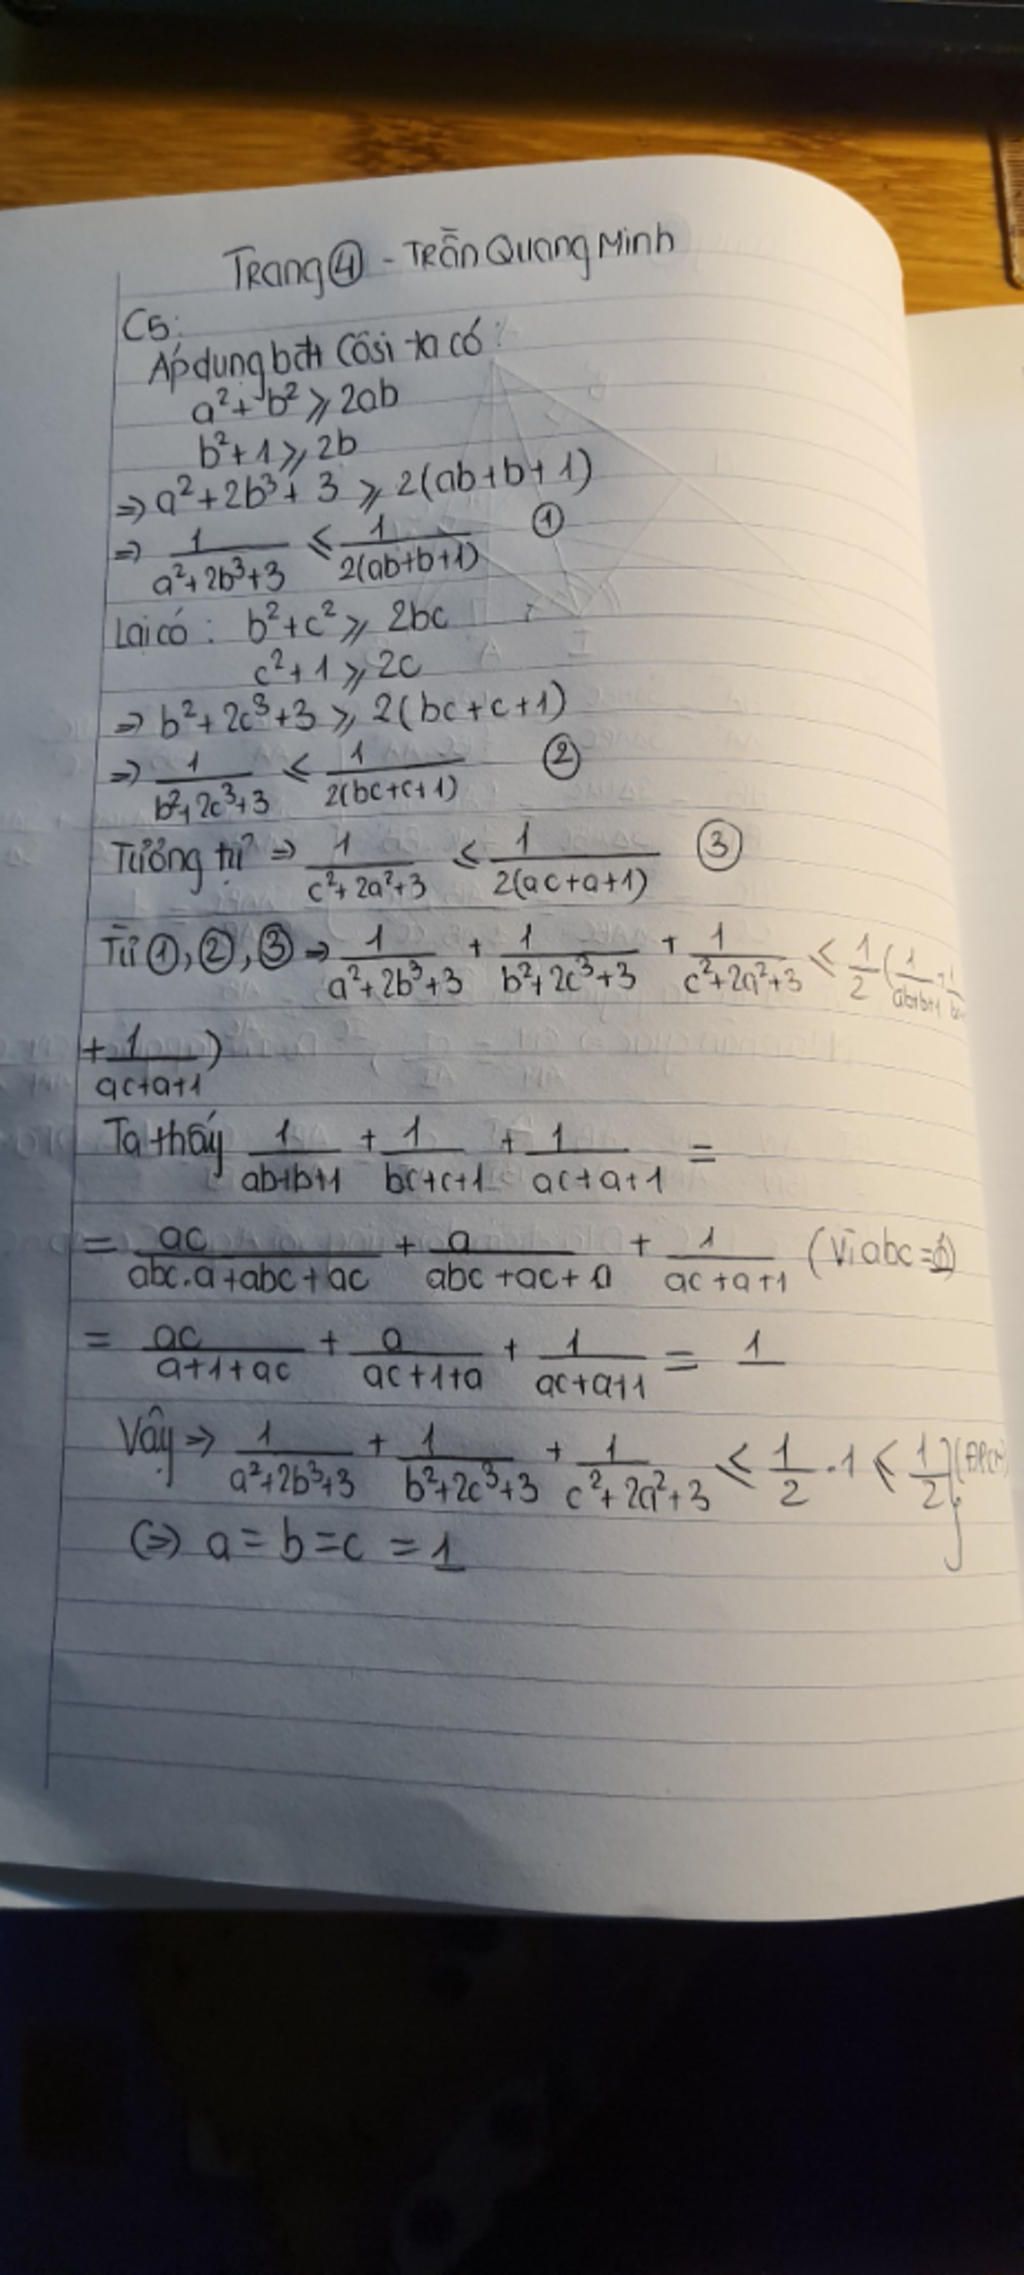 Trang ④ - Trần Quang Minh
C5:
Áp dụng bđt Côsi ta có:
a² + b² ⩾ 2ab
b² + 1 ⩾ 2b
⇒ a² + 2b³ + 3 ⩾ 2(ab + b + 1)
⇒ 1/(a² + 2b³ + 3) ⩽ 1/(2(ab+b+1)) ①
Lại có: b² + c² ⩾ 2bc
c² + 1 ⩾ 2c
⇒ b² + 2c³ + 3 ⩾ 2(bc + c + 1)
⇒ 1/(b² + 2c³ + 3) ⩽ 1/(2(bc+c+1)) ②
Tương tự ⇒ 1/(c² + 2a² + 3) ⩽ 1/(2(ac+a+1)) ③
Từ ①, ②, ③ ⇒ 1/(a² + 2b³ + 3) + 1/(b² + 2c³ + 3) + 1/(c² + 2a² + 3) ⩽ 1/2 (1/(ab+b+1) +
+ 1/(ac+a+1))
Ta thấy 1/(ab+b+1) + 1/(bc+c+1) + 1/(ac+a+1) =
= ac/(abc.a + abc + ac) + a/(abc + ac + a) + 1/(ac + a + 1) (vì abc = 1)
= ac/(a + 1 + ac) + a/(ac + 1 + a) + 1/(ac+a+1) = 1
Vậy ⇒ 1/(a² + 2b³ + 3) + 1/(b² + 2c³ + 3) + 1/(c² + 2a² + 3) ⩽ 1/2 . 1 ⩽ 1/2 (ĐPCM)
(⇒) a = b = c = 1